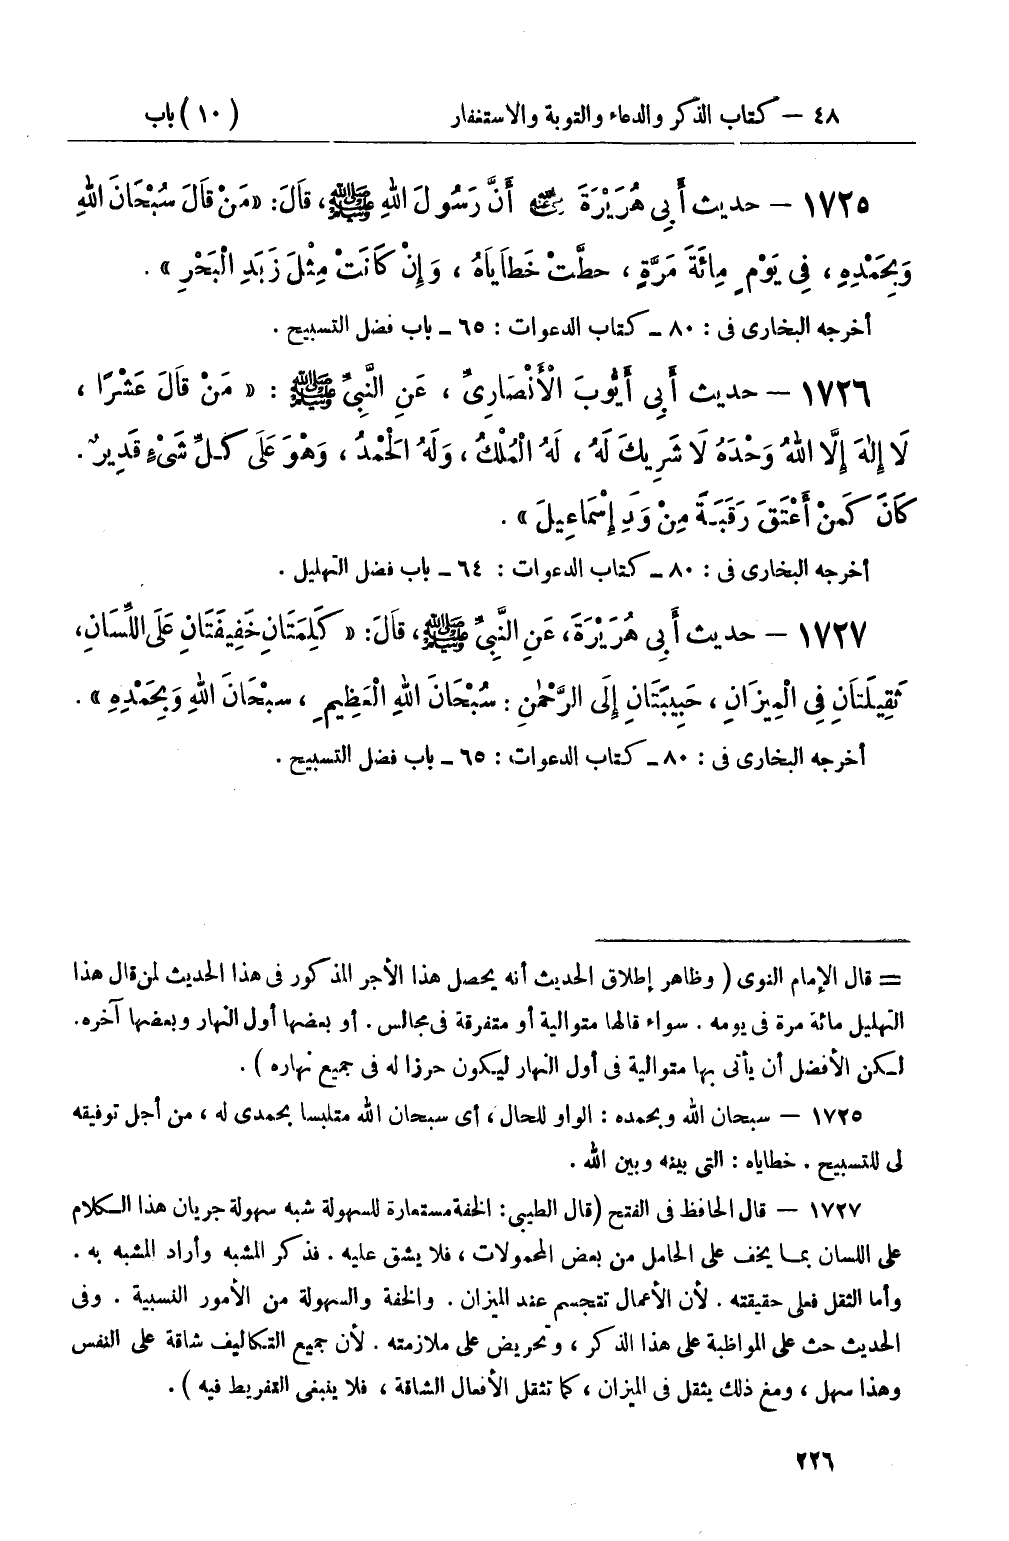 ٤٨ – كتاب الذكر والدعاء والتوبة والاستغفار (١٠) باب
١٧٢٥ – حديث أَبِي هُرَيْرَةَ رضي الله عنه أَنَّ رَسُولَ اللهِ ﷺ، قَالَ: «مَنْ قَالَ سُبْحَانَ اللهِ
وَبِحَمْدِهِ، فِي يَوْمٍ مِائَةَ مَرَّةٍ، حطَّتْ خَطاَيَاهُ، وَإِنْ كَانَتْ مِثْلَ زَبَدِ الْبَحْرِ».
أخرجه البخارى فى: ٨٠ ـ كتاب الدعوات: ٦٥ ـ باب فضل التسبيح.
١٧٢٦ – حديث أَبِي أَيُّوبَ الْأَنْصَارِيِّ، عَنِ النَّبِيِّ ﷺ: «مَنْ قَالَ عَشْرًا،
لَا إِلٰهَ إِلَّا اللهُ وَحْدَهُ لَا شَرِيكَ لَهُ، لَهُ الْمُلْكُ، وَلَهُ الْحَمْدُ، وَهْوَ عَلَى كلِّ شَيْءٍ قَدِيرٌ.
كَانَ كَمَنْ أَعْتَقَ رَقَبَةً مِنْ وَلَدِ إِسْمَاعِيلَ».
أخرجه البخارى فى: ٨٠ ـ كتاب الدعوات: ٦٤ ـ باب فضل التهليل.
١٧٢٧ – حديث أَبِي هُرَيْرَةَ، عَنِ النَّبِيِّ ﷺ، قَالَ: «كَلِمَتَانِ خَفِيفَتَانِ عَلَى اللِّسَانِ،
ثَقِيلَتاَنِ فِي الْمِيزَانِ، حَبِيبَتَانِ إِلَى الرَّحْمٰنِ: سُبْحَانَ اللهِ الْعَظِيمِ، سبْحَانَ اللهِ وَبِحَمْدِهِ».
أخرجه البخارى فى: ٨٠ ـ كتاب الدعوات: ٦٥ ـ باب فضل التسبيح.
= قال الإمام النوى (وظاهر إطلاق الحديث أنه يحصل هذا الأجر المذكور فى هذا الحديث لمن قال هذا
التهليل مائة مرة فى يومه. سواء قالها متوالية أو متفرقة فى مجالس. أو بعضها أول النهار وبعضها آخره.
لكن الأفضل أن يأتى بها متوالية فى أول النهار ليكون حرزا له فى جميع نهاره).
١٧٢٥ – سبحان الله وبحمده: الواو للحال، أى سبحان الله متلبسا بحمدى له، من أجل توفيقه
لى للتسبيح. خطاياه: التى بينه وبين الله.
١٧٢٧ – قال الحافظ فى الفتح (قال الطيبي: الخفة مستعارة للسهولة شبه سهولة جريان هذا الكلام
على اللسان بما يخف على الحامل من بعض المحمولات، فلا يشق عليه. فذكر المشبه وأراد المشبه به.
وأما الثقل فعلى حقيقته. لأن الأعمال تتجسم عند الميزان. والخفة والسهولة من الأمور النسبية. وفى
الحديث حث على المواظبة على هذا الذكر، وتحريض على ملازمته. لأن جميع التكاليف شاقة على النفس
وهذا سهل، ومع ذلك يثقل فى الميزان، كما تثقل الأفعال الشاقة، فلا ينبغى التفريط فيه).
٢٢٦